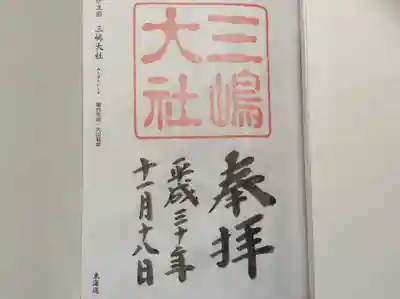 三嶋
大社
奉拝
平成三十年
十一月十八日
三嶋大社
東海道